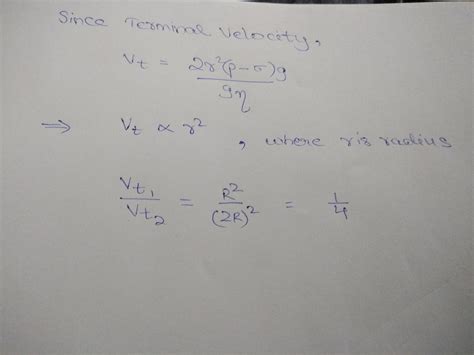 Since Terminal Velocity,
Vt = 2r²(ρ-σ)g / 9η
⇒ Vt ∝ r² , where r is radius
Vt₁ / Vt₂ = R² / (2R)² = 1/4